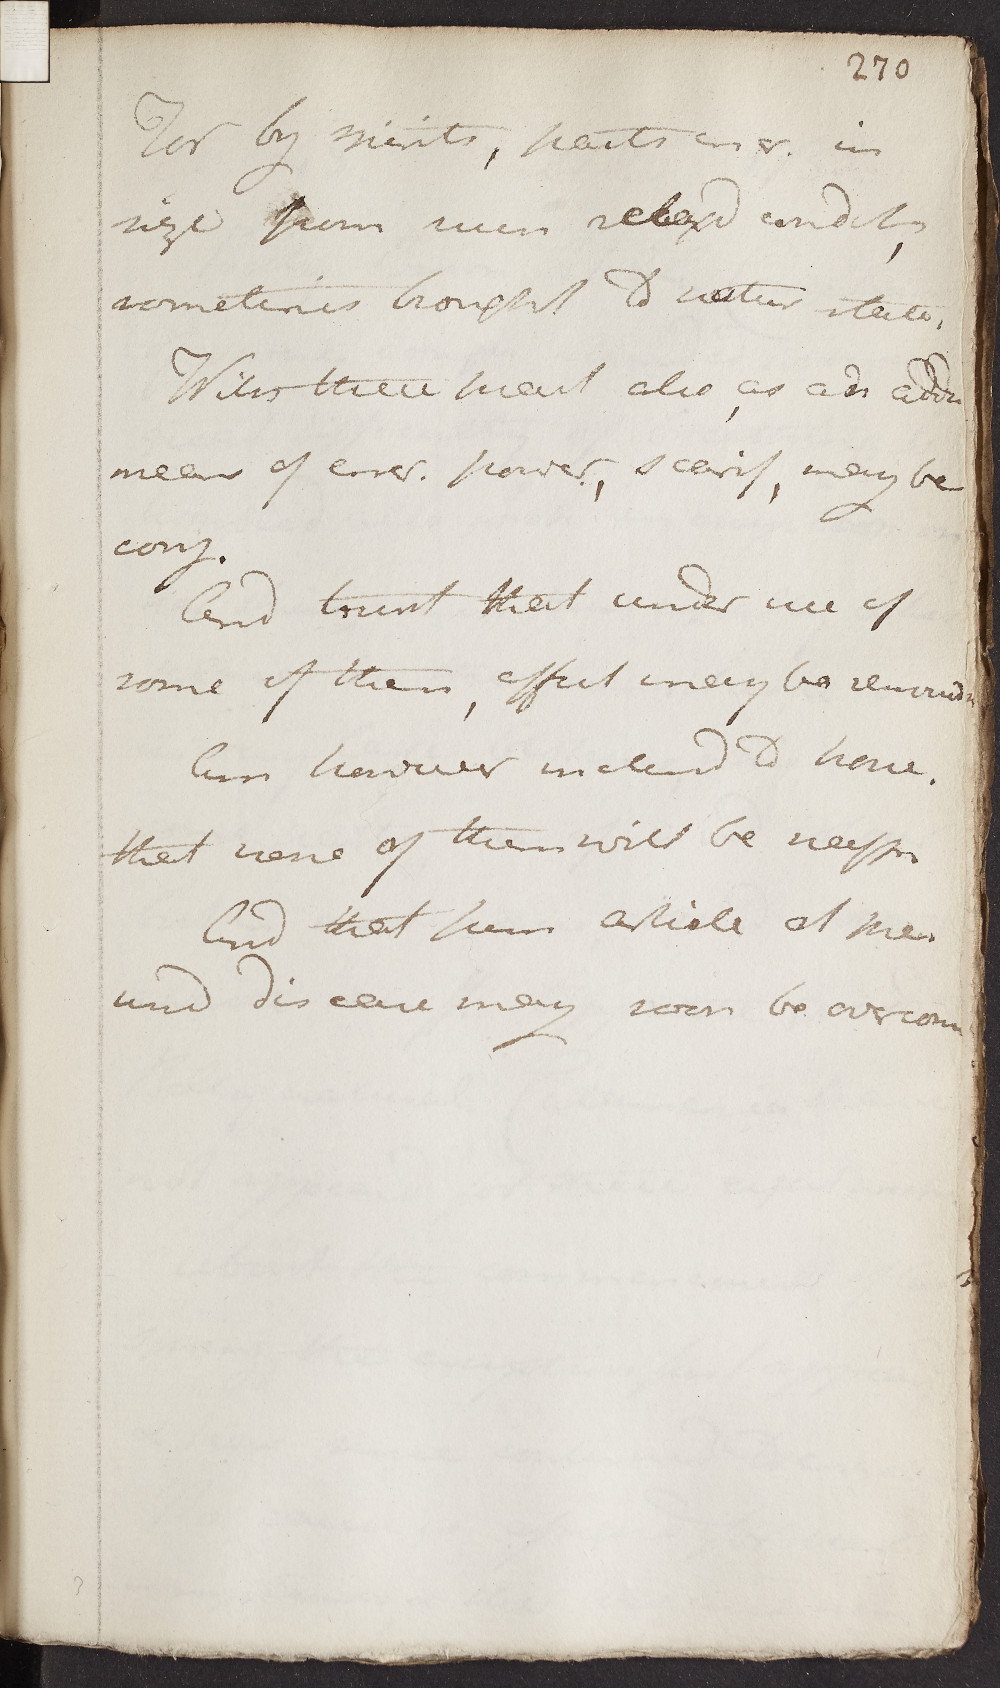 270
For by means, parts incr. in
size from mere relaxd condition,
sometimes brought to natur state.
With these heart also, as an addn
means of incr. power, scarif, may be
conj.
And trust that under use of
some of them, effect may be
Am however inclend to hope.
that none of them will be necessy
And that from article at
und disease may soon be overcom